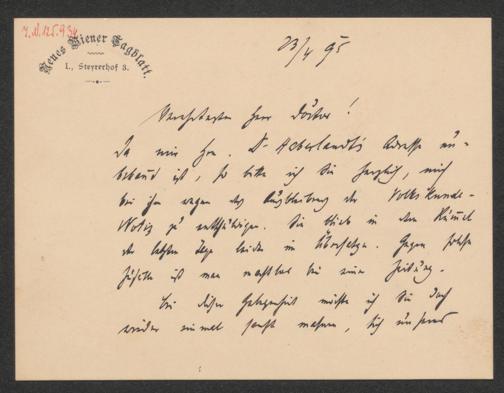 J.N. 125.934
Neues Wiener Tagblatt.
I., Steyrerhof 3.
23/4 95
Verehrtester Herr Doctor!
Da mir Hrn. Dr Haberlandt's Adresse un-
bekannt ist, so bitte ich Sie herzlich, mich
bei ihm wegen des Ausbleibens der Volkskunde-
Notiz zu entschuldigen. Sie blieb in dem Rummel
der letzten Tage leider im Übersatze. Gegen solche
ist man machtlos bei einer Zeitung.
Bei dieser Gelegenheit möchte ich Sie doch
wieder einmal sanft mahnen, sich unseres